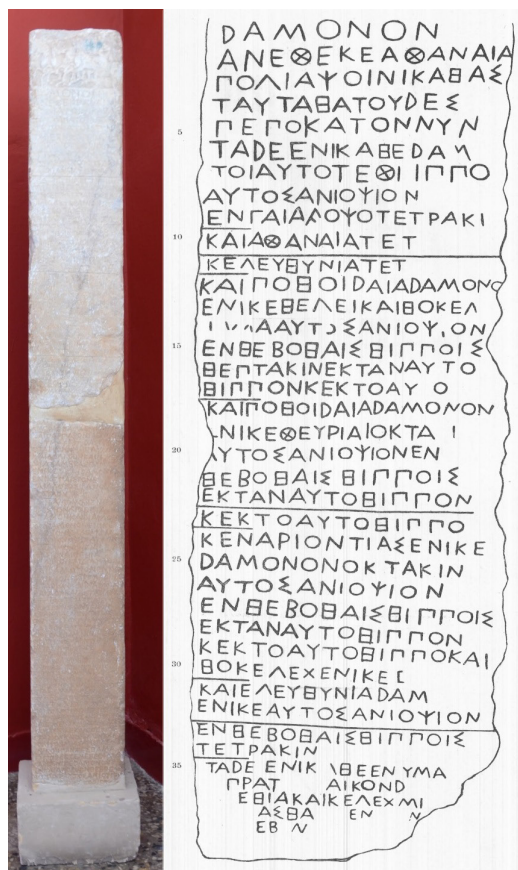 ΔΑΜΟΝΟΝ
ΑΝΕΘΕΚΕΑΘΑΝΑΙΑ
ΠΟΛΙΑΨΟΙΝΙΚΑΗΑΣ
ΤΑΥΤΑΗΑΤΟΥΔΕΣ
5 ΠΕΠΟΚΑΤΟΝΝΥΝ
ΤΑΔΕΕΝΙΚΑΗΕΔΑΜ
ΤΟΙΑΥΤΟΤΕΘΙΙΠΠΟ
ΑΥΤΟΣΑΝΙΟΨΙΟΝ
ΕΝΓΑΙΑΛΟΨΟΤΕΤΡΑΚΙ
10 ΚΑΙΑΘΑΝΑΙΑΤΕΤ
ΚΕΛΕΥΗΥΝΙΑΤΕΤ
ΚΑΙΠΟΗΟΙΔΑΙΑΔΑΜΟΝΟ
ΕΝΙΚΕΗΕΛΕΙΚΑΙΗΟΚΕΛ
ΑΑΥΤΟΣΑΝΙΟΨΙΟΝ
15 ΕΝΗΕΒΟΗΑΙΣΗΙΠΠΟΙΣ
ΗΕΠΤΑΚΙΝΕΚΤΑΝΑΥΤΟ
ΗΙΠΠΟΝΚΕΚΤΟΑΥ Ο
ΚΑΙΠΟΗΟΙΔΑΙΑΔΑΜΟΝΟΝ
ΝΙΚΕΘΕΥΡΙΑΙΟΚΤΑ Ι
20 ΑΥΤΟΣΑΝΙΟΨΙΟΝΕΝ
ΗΕΒΟΗΑΙΣΗΙΠΠΟΙΣ
ΕΚΤΑΝΑΥΤΟΗΙΠΠΟΝ
ΚΕΚΤΟΑΥΤΟΗΙΠΠΟ
ΚΕΝΑΡΙΟΝΤΙΑΣΕΝΙΚΕ
25 ΔΑΜΟΝΟΝΟΚΤΑΚΙΝ
ΑΥΤΟΣΑΝΙΟΨΙΟΝ
ΕΝΗΕΒΟΗΑΙΣΗΙΠΠΟΙΣ
ΕΚΤΑΝΑΥΤΟΗΙΠΠΟΝ
ΚΕΚΤΟΑΥΤΟΗΙΠΠΟΚΑΙ
30 ΗΟΚΕΛΕΧΕΝΙΚΕ
ΚΑΙΕΛΕΥΗΥΝΙΑΔΑΜ
ΕΝΙΚΕΑΥΤΟΣΑΝΙΟΨΙΟΝ
ΕΝΗΕΒΟΗΑΙΣΗΙΠΠΟΙΣ
ΤΕΤΡΑΚΙΝ
35 ΤΑΔΕΕΝΙΚ ΑΗΕΕΝΥΜΑ
ΠΡΑΤ ΑΙΚΟΝΔ
ΕΗΙΑΚΑΙΚΕΛΕΧΜΙ
ΑΣΗΑ ΕΝ Ν
ΕΗ Ν